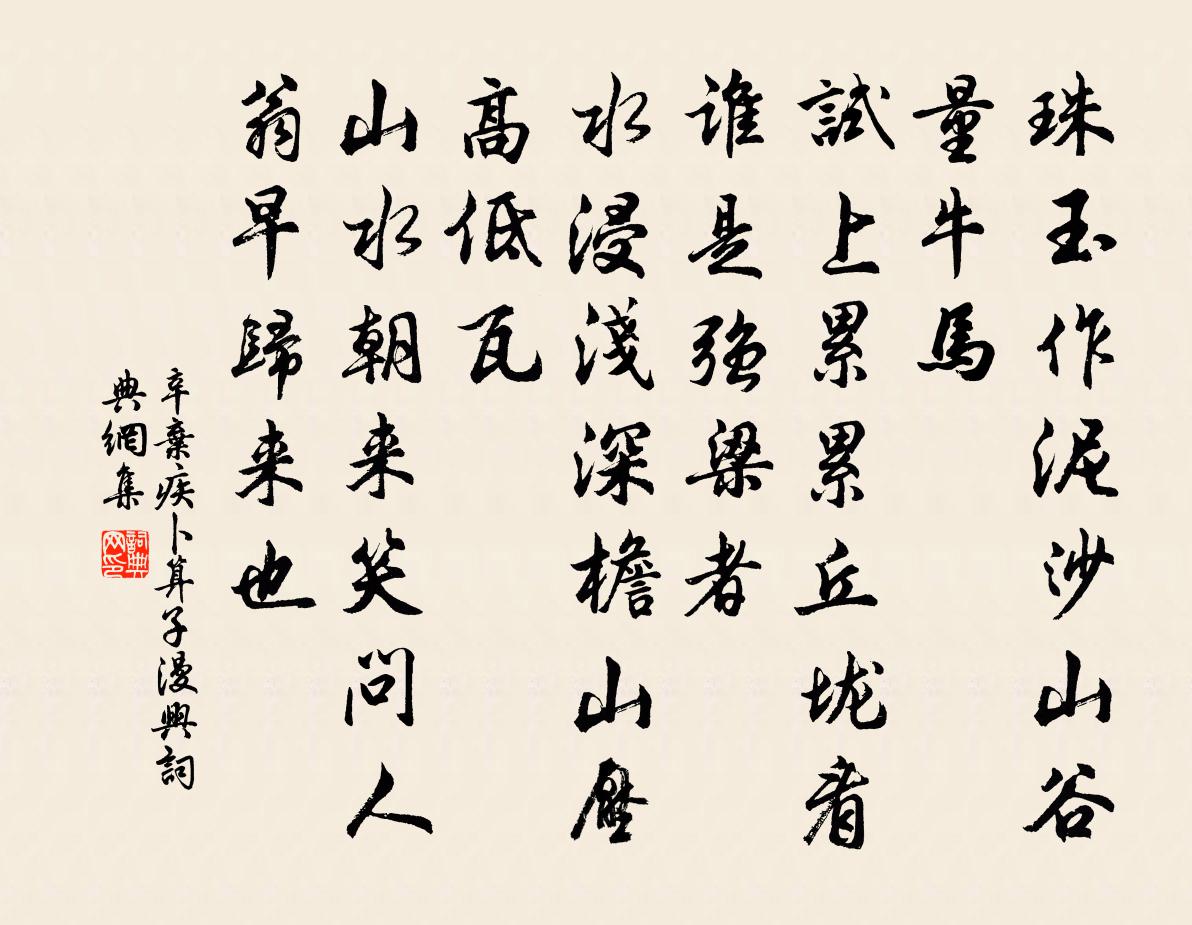 珠玉作泥沙山谷
量牛馬
試上累累丘垅看
谁是強梁者
水浸淺深檐山壓
高低瓦
山水朝来笑問人
翁早歸来也
辛棄疾卜算子漫興詞
典網集
詞典网印